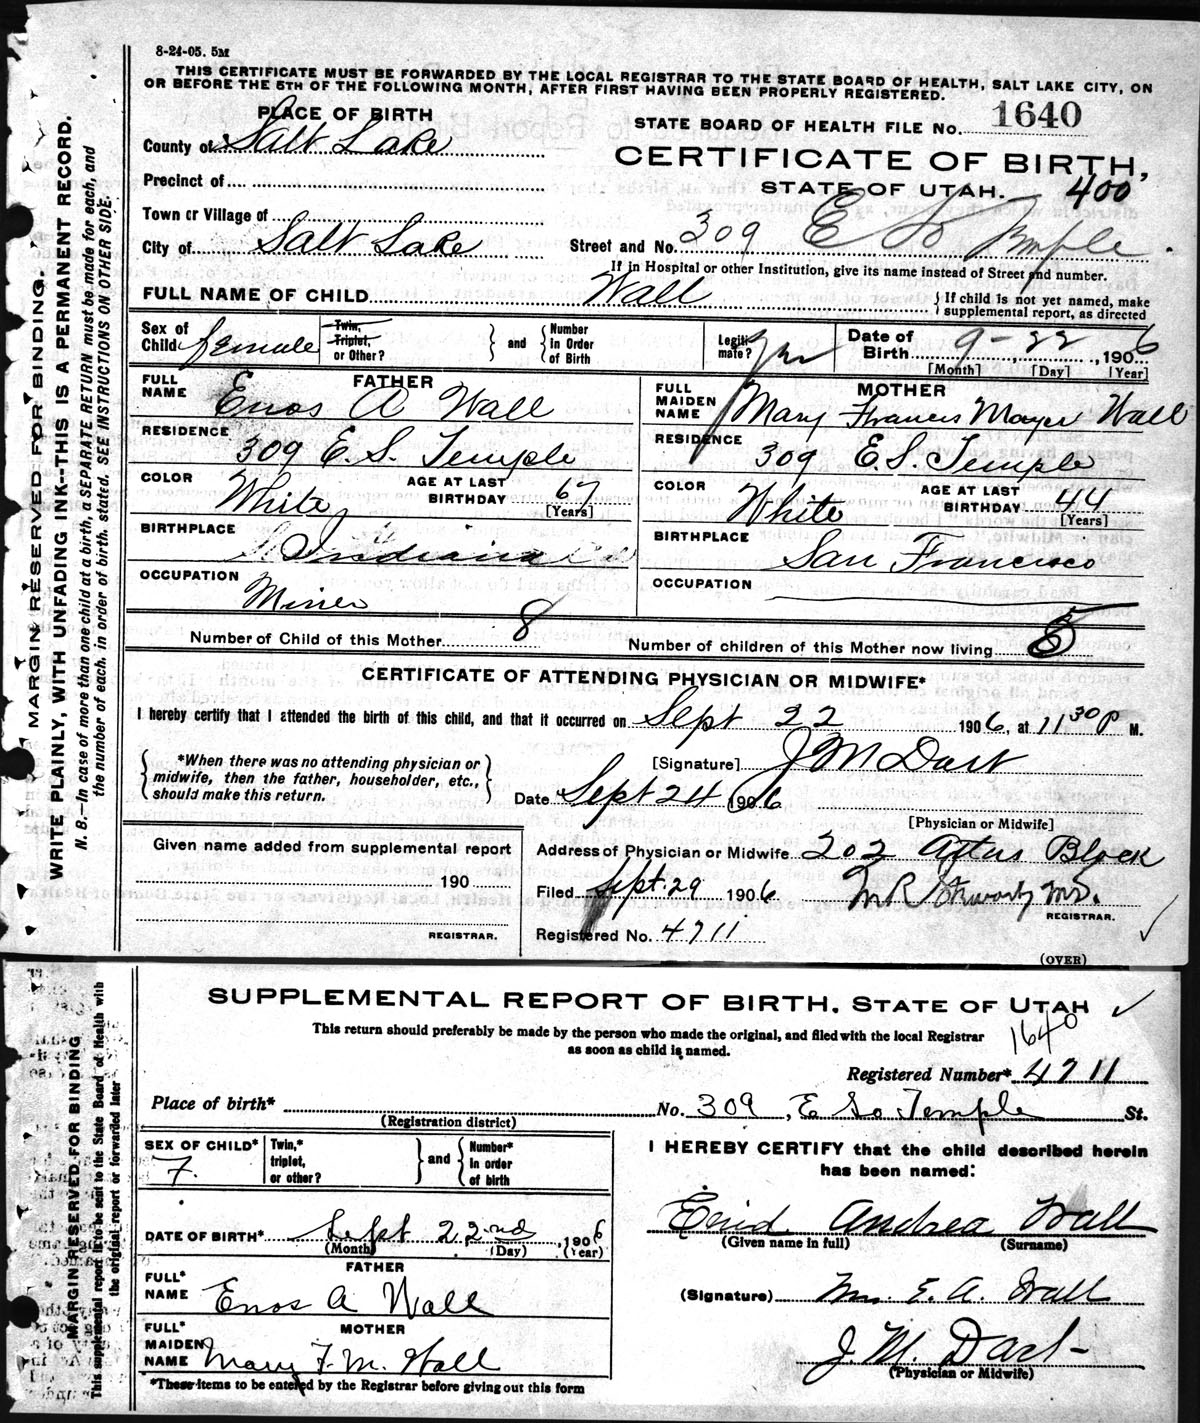 8-24-05. 5M
THIS CERTIFICATE MUST BE FORWARDED BY THE LOCAL REGISTRAR TO THE STATE BOARD OF HEALTH, SALT LAKE CITY, ON
OR BEFORE THE 5TH OF THE FOLLOWING MONTH, AFTER FIRST HAVING BEEN PROPERLY REGISTERED.
PLACE OF BIRTH
STATE BOARD OF HEALTH FILE NO. 1640
County of Salt Lake
CERTIFICATE OF BIRTH,
Precinct of
STATE OF UTAH. 400
Town or Village of
City of Salt Lake
Street and No. 309 E So Temple
If in Hospital or other Institution, give its name instead of Street and number.
FULL NAME OF CHILD Wall
If child is not yet named, make
supplemental report, as directed
Sex of Child female
Twin, Triplet, or Other? and Number in Order of Birth
Legitimate? yes
Date of Birth 9-22, 1906
[Month] [Day] [Year]
FATHER
FULL NAME Enos A Wall
RESIDENCE 309 E. S. Temple
COLOR White
AGE AT LAST BIRTHDAY 67
[Years]
BIRTHPLACE Indiana
OCCUPATION Miner
MOTHER
FULL MAIDEN NAME Mary Francis Mayer Wall
RESIDENCE 309 E. S. Temple
COLOR White
AGE AT LAST BIRTHDAY 44
[Years]
BIRTHPLACE San Francisco
OCCUPATION
Number of Child of this Mother 8
Number of children of this Mother now living 5
CERTIFICATE OF ATTENDING PHYSICIAN OR MIDWIFE*
I hereby certify that I attended the birth of this child, and that it occurred on Sept 22 1906, at 11 30 P M.
*When there was no attending physician or
midwife, then the father, householder, etc.,
should make this return.
[Signature] J M Dart
Date Sept 24 1906
[Physician or Midwife]
Given name added from supplemental report
190
REGISTRAR.
Address of Physician or Midwife 202 Block
Filed Sept. 29 1906
M R Stewart MD.
REGISTRAR.
Registered No. 4711
(OVER)
MARGIN RESERVED FOR BINDING.
WRITE PLAINLY, WITH UNFADING INK--THIS IS A PERMANENT RECORD.
N. B.--In case of more than one child at a birth, a SEPARATE RETURN must be made for each, and
the number of each, in order of birth, stated. SEE INSTRUCTIONS ON OTHER SIDE.
SUPPLEMENTAL REPORT OF BIRTH, STATE OF UTAH
This return should preferably be made by the person who made the original, and filed with the local Registrar
as soon as child is named.
1640
Registered Number* 4711
Place of birth* No. 309, E So Temple St.
(Registration district)
SEX OF CHILD* F.
Twin,* triplet, or other? and Number* in order of birth
I HEREBY CERTIFY that the child described herein
has been named:
DATE OF BIRTH* Sept 22nd, 1906
(Month) (Day) (Year)
Enid Andrea Wall
(Given name in full) (Surname)
FATHER
FULL* NAME Enos A Wall
(Signature) Mrs. E. A. Wall
MOTHER
FULL* MAIDEN NAME Mary F. M. Wall
J. M. Dart
(Physician or Midwife)
*These items to be entered by the Registrar before giving out this form
MARGIN RESERVED FOR BINDING
This supplemental report is to be sent to the State Board of Health with
the original report or forwarded later